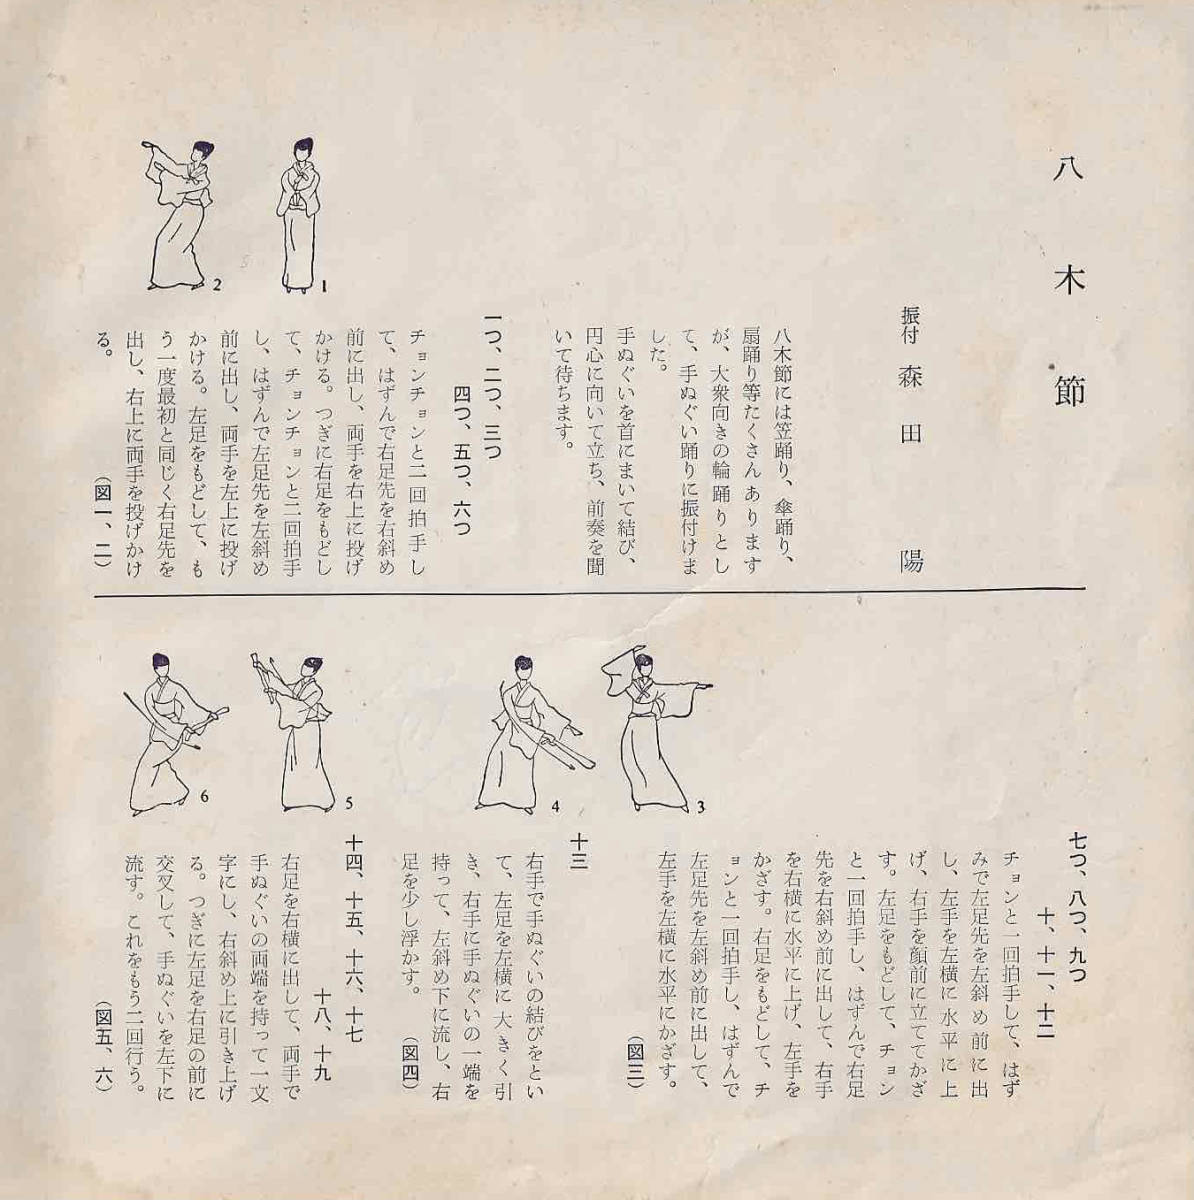 八木節
振付 森田 陽
八木節には笠踊り、傘踊り、
扇踊り等たくさんあります
が、大衆向きの輪踊りとし
て、手ぬぐい踊りに振付けま
した。
手ぬぐいを首にまいて結び、
円心に向いて立ち、前奏を聞
いて待ちます。
一つ、二つ、三つ
四つ、五つ、六つ
チョンチョンと二回拍手し
て、はずんで右足先を右斜め
前に出し、両手を右上に投げ
かける。つぎに右足をもどし
て、チョンチョンと二回拍手
し、はずんで左足先を左斜め
前に出し、両手を左上に投げ
かける。左足をもどして、も
う一度最初と同じく右足先を
出し、右上に両手を投げかけ
る。
(図一、二)
1
2
七つ、八つ、九つ
十、十一、十二
チョンと一回拍手して、はず
みで左足先を左斜め前に出
し、左手を左横に水平に上
げ、右手を顔前に立ててかざ
す。左足をもどして、チョン
と一回拍手し、はずんで右足
先を右斜め前に出して、右手
を右横に水平に上げ、左手を
かざす。右足をもどして、チ
ョンと一回拍手し、はずんで
左足先を左斜め前に出して、
左手を左横に水平にかざす。
(図三)
3
十三
右手で手ぬぐいの結びをとい
て、左足を左横に大きく引
き、右手に手ぬぐいの一端を
持って、左斜め下に流し、右
足を少し浮かす。
(図四)
4
十四、十五、十六、十七
十八、十九
右足を右横に出して、両手で
手ぬぐいの両端を持って一文
字にし、右斜め上に引き上げ
る。つぎに左足を右足の前に
交叉して、手ぬぐいを左下に
流す。これをもう二回行う。
(図五、六)
5
6